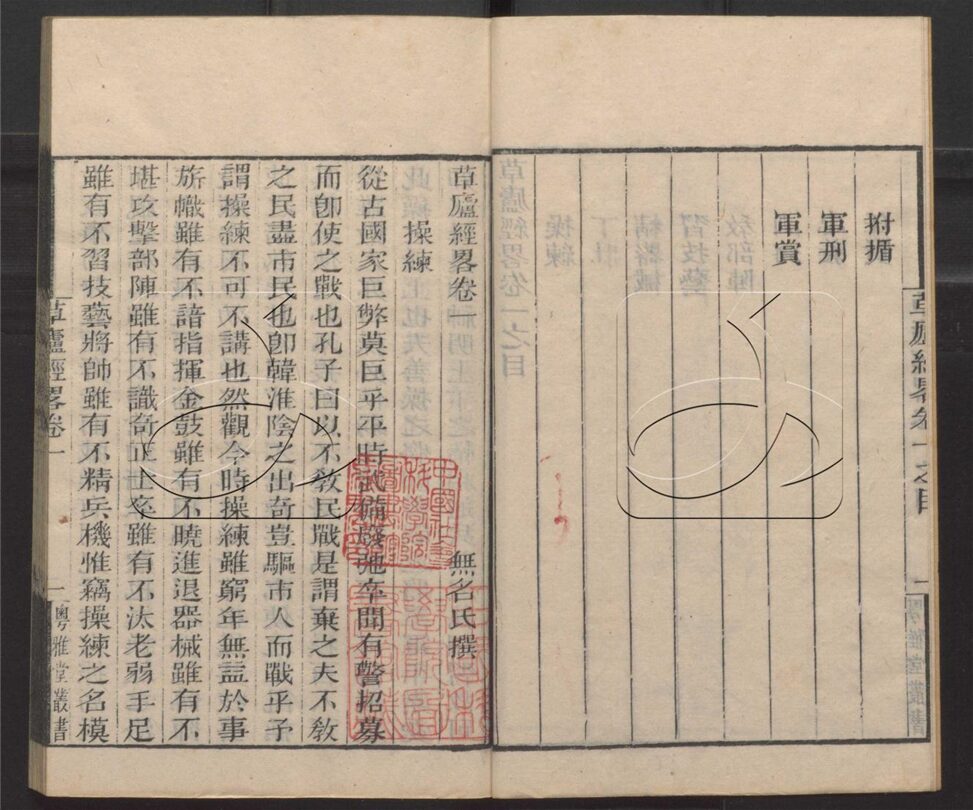 拊揗
軍刑
軍賞
草廬經畧卷一之目
一
粵雅堂叢書
草廬經畧卷一
無名氏撰
操練
從古國家巨弊莫巨乎平時武備廢弛卒聞有警招募
而卽使之戰也孔子曰以不敎民戰是謂棄之夫不敎
之民盡市民也卽韓淮陰之出奇豈驅市人而戰乎予
謂操練不可不講也然觀今時操練雖窮年無益於事
旂幟雖有不諳指揮金鼓雖有不曉進退器械雖有不
堪攻擊部陣雖有不識奇正士卒雖有不汰老弱手足
雖有不習技藝將帥雖有不精兵機惟竊操練之名模
草廬經畧卷一
一
粵雅堂叢書